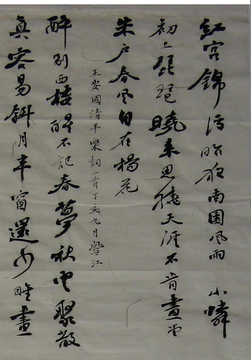 紅宮錦污昨夜南園風雨 小憐
初上琵琶曉來思繞天涯不肯畫堂
朱户春風自在楊花
王安國清平樂詞一首丁亥九月鷺江
醉别西樓醒不記春夢秋雲聚散
真容易斜月半窗還少睡畫